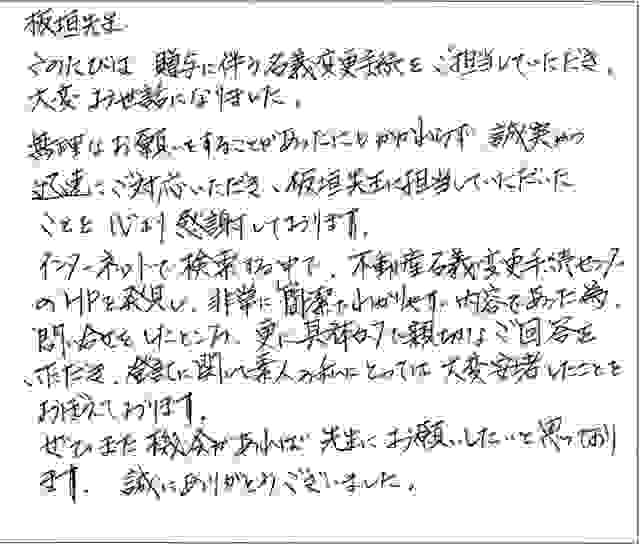 板垣先生
このたびは 贈与に伴う名義変更手続をご担当していただき、
大変お世話になりました。
無理なお願いをすることがあったにもかかわらず 誠実かつ
迅速にご対応いただき、板垣先生に担当していただいた
ことを 心より感謝しております。
インターネットで検索する中で、不動産名義変更手続センター
のHPを発見し、非常に簡潔でわかりやすい内容であった為、
問い合せをしたところ、更に具体的に親切なご回答を
いただき、登記に関して素人の私にとっては大変安堵したことを
おぼえております。
ぜひまた機会があれば 先生にお願いしたいと思っており
ます。 誠にありがとうございました。